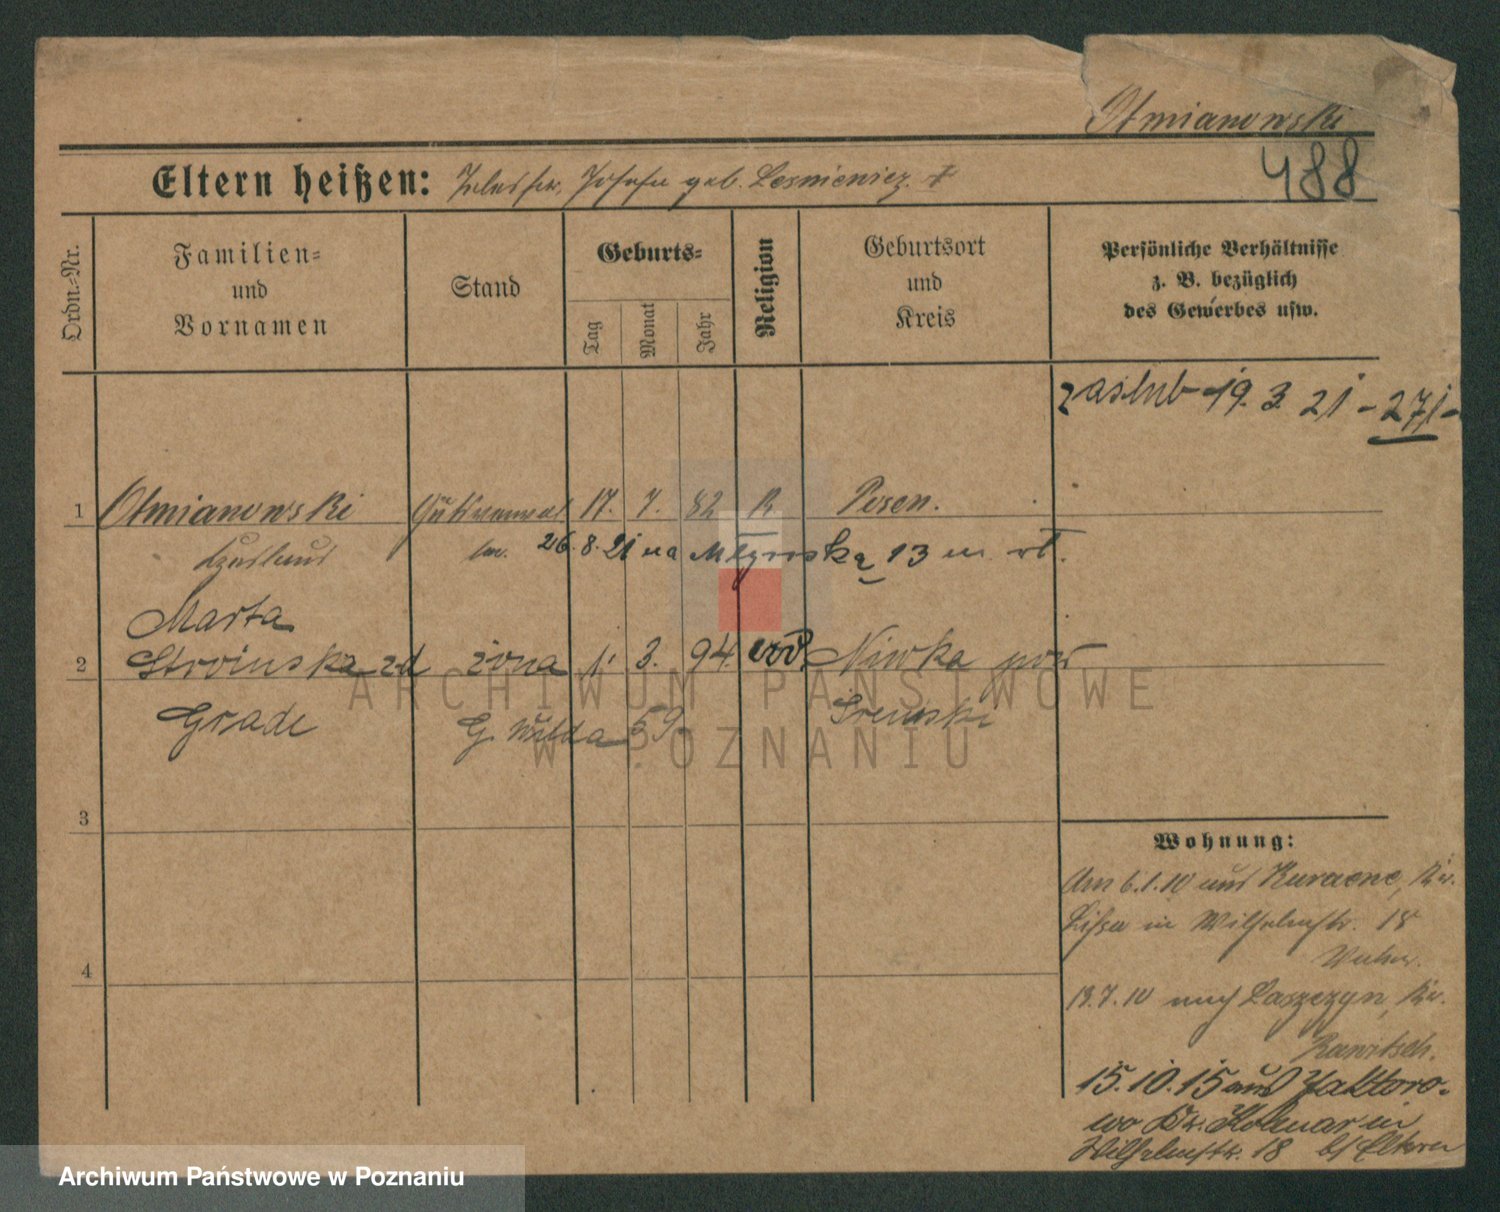 Otmianowski
488
Eltern heißen: geb. Lesniewicz †
Ordn.-Nr.
Familien-
und
Vornamen
Stand
Geburts-
Tag
Monat
Jahr
Religion
Geburtsort
und
Kreis
Persönliche Verhältnisse
z. B. bezüglich
des Gewerbes usw.
zaslub 19. 3. 21 - 271 -
1 Otmianowski 17. 7. 82 K. Posen.
26. 8. 21 na Młyńską 13 m.
Marta
2 Stroinska zd żona 1. 3. 94. Niwka pow
Grade G. Wilda 59. Sremski
3
4
Wohnung:
Am 6.1.10 aus Kr.
Lissa in Wilhelmstr. 18
13.7.10 nach Laszczyn, Kr.
Rawitsch.
15.10.15 aus Jaktoro-
wo Kr. Kolmar in
Wilhelmstr. 18 b/ Eltern
ARCHIWUM PAŃSTWOWE
W POZNANIU
Archiwum Państwowe w Poznaniu